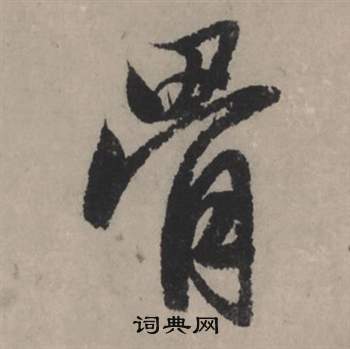 骨
词典网